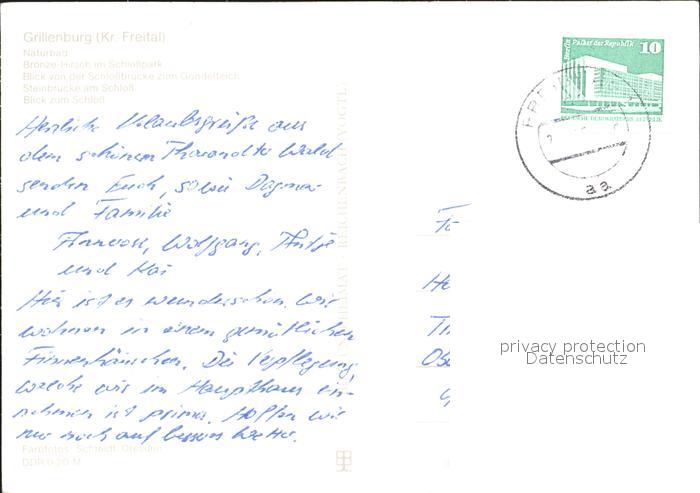 Grillenburg (Kr. Freital)
Naturbad
Bronze-Hirsch im Schloßpark
Blick von der Schloßbrücke zum Gondelteich
Steinbrücke am Schloß
Blick zum Schloß
Herzliche Urlaubsgrüße aus
dem schönen Tharandter Wald
senden Euch, sowie Dagmar
und Familie
Annerose, Wolfgang, Antje
und Kai
Hier ist es wunderschön. Wir
wohnen in einem gemütlichen
Finnenhäuschen. Die Verpflegung,
welche wir im Haupthaus ein-
nehmen ist prima. Hoffen wir
nur noch auf besseres Wetter.
Farbfotos: Schmidt, Dresden
DDR 0,20 M
BILD UND HEIMAT · REICHENBACH (VOGTL.)
Berlin Palast der Republik 10
DEUTSCHE DEMOKRATISCHE REPUBLIK
aa
privacy protection
Datenschutz